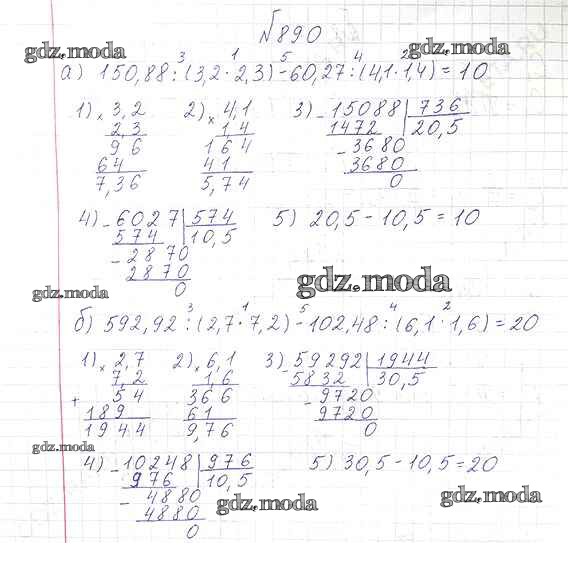 №890
gdz.moda
gdz.moda
3 1 5 4 2
а) 150,88:(3,2·2,3)-60,27:(4,1·1,4)=10
1) × 3,2 2) × 4,1 3) - 15088 | 736
2,3 1,4 1472 20,5
96 164 - 3680
64 41 3680
7,36 5,74 0
4) - 6027 | 574 5) 20,5-10,5=10
574 10,5
- 2870
2870
0
gdz.moda
gdz.moda
3 1 5 4 2
б) 592,92:(2,7·7,2)-102,48:(6,1·1,6)=20
1) × 2,7 2) × 6,1 3) - 59292 | 1944
7,2 1,6 5832 30,5
+ 54 366 - 9720
189 61 9720
1944 9,76 0
gdz.moda
4) - 10248 | 976 5) 30,5-10,5=20
976 10,5
- 4880
4880
0
gdz.moda
gdz.moda